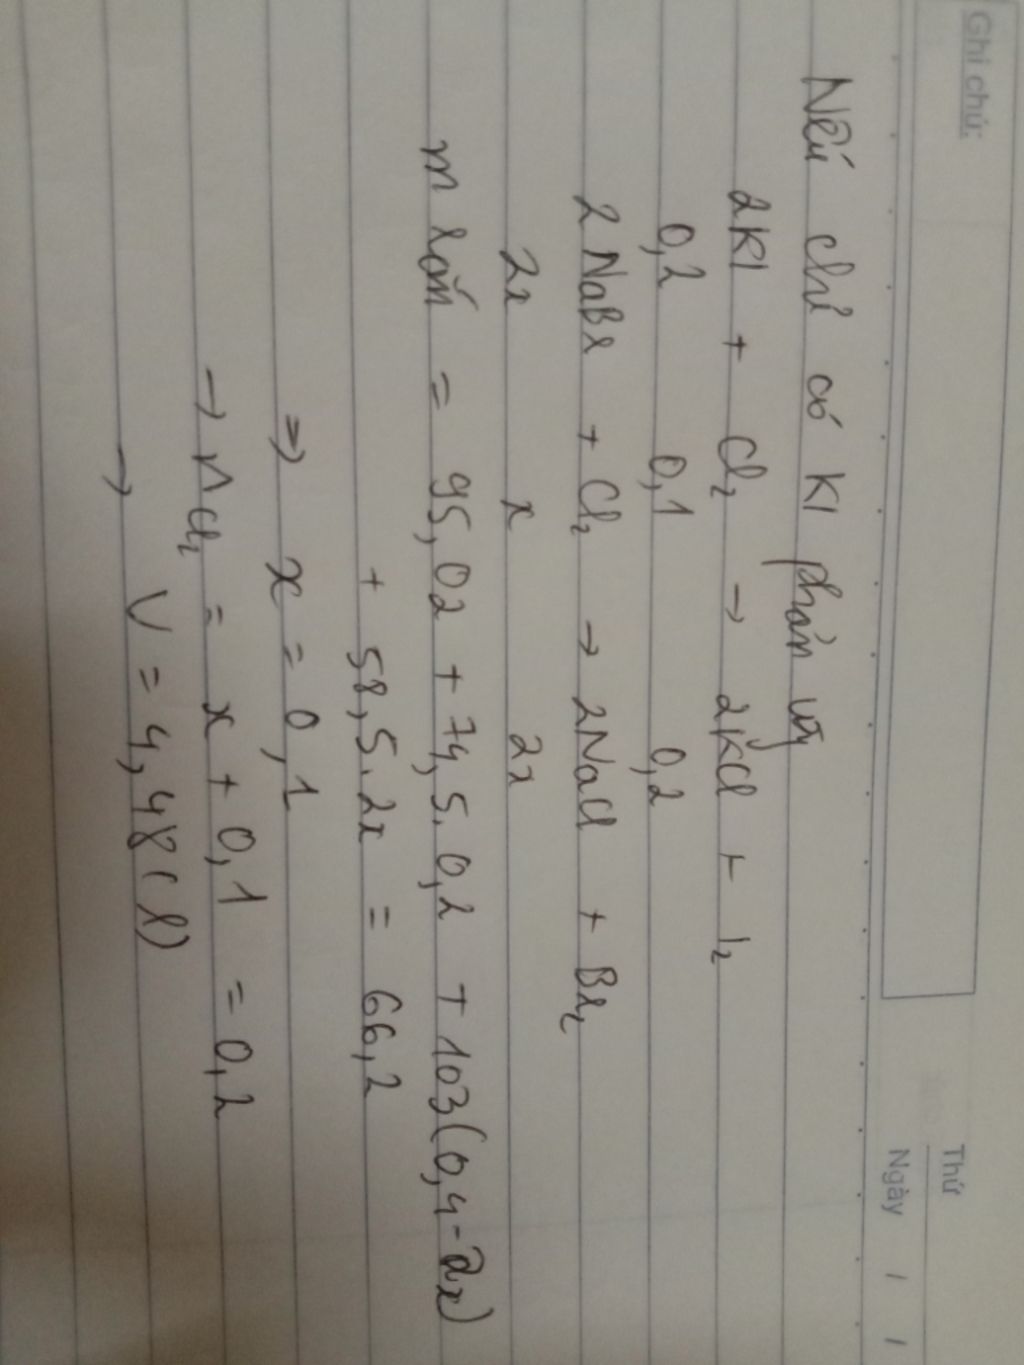 Ghi chú:
Thứ
Ngày / /
Nếu chỉ có KI phản ứng
2KI + Cl₂ → 2KCl + I₂
0,2 0,1 0,2
2NaBr + Cl₂ → 2NaCl + Br₂
2x x 2x
m rắn = 95,02 + 74,5.0,2 + 103(0,4-2x)
+ 58,5.2x = 66,2
=> x = 0,1
→ n Cl₂ = x + 0,1 = 0,2
→ V = 4,48 (l)